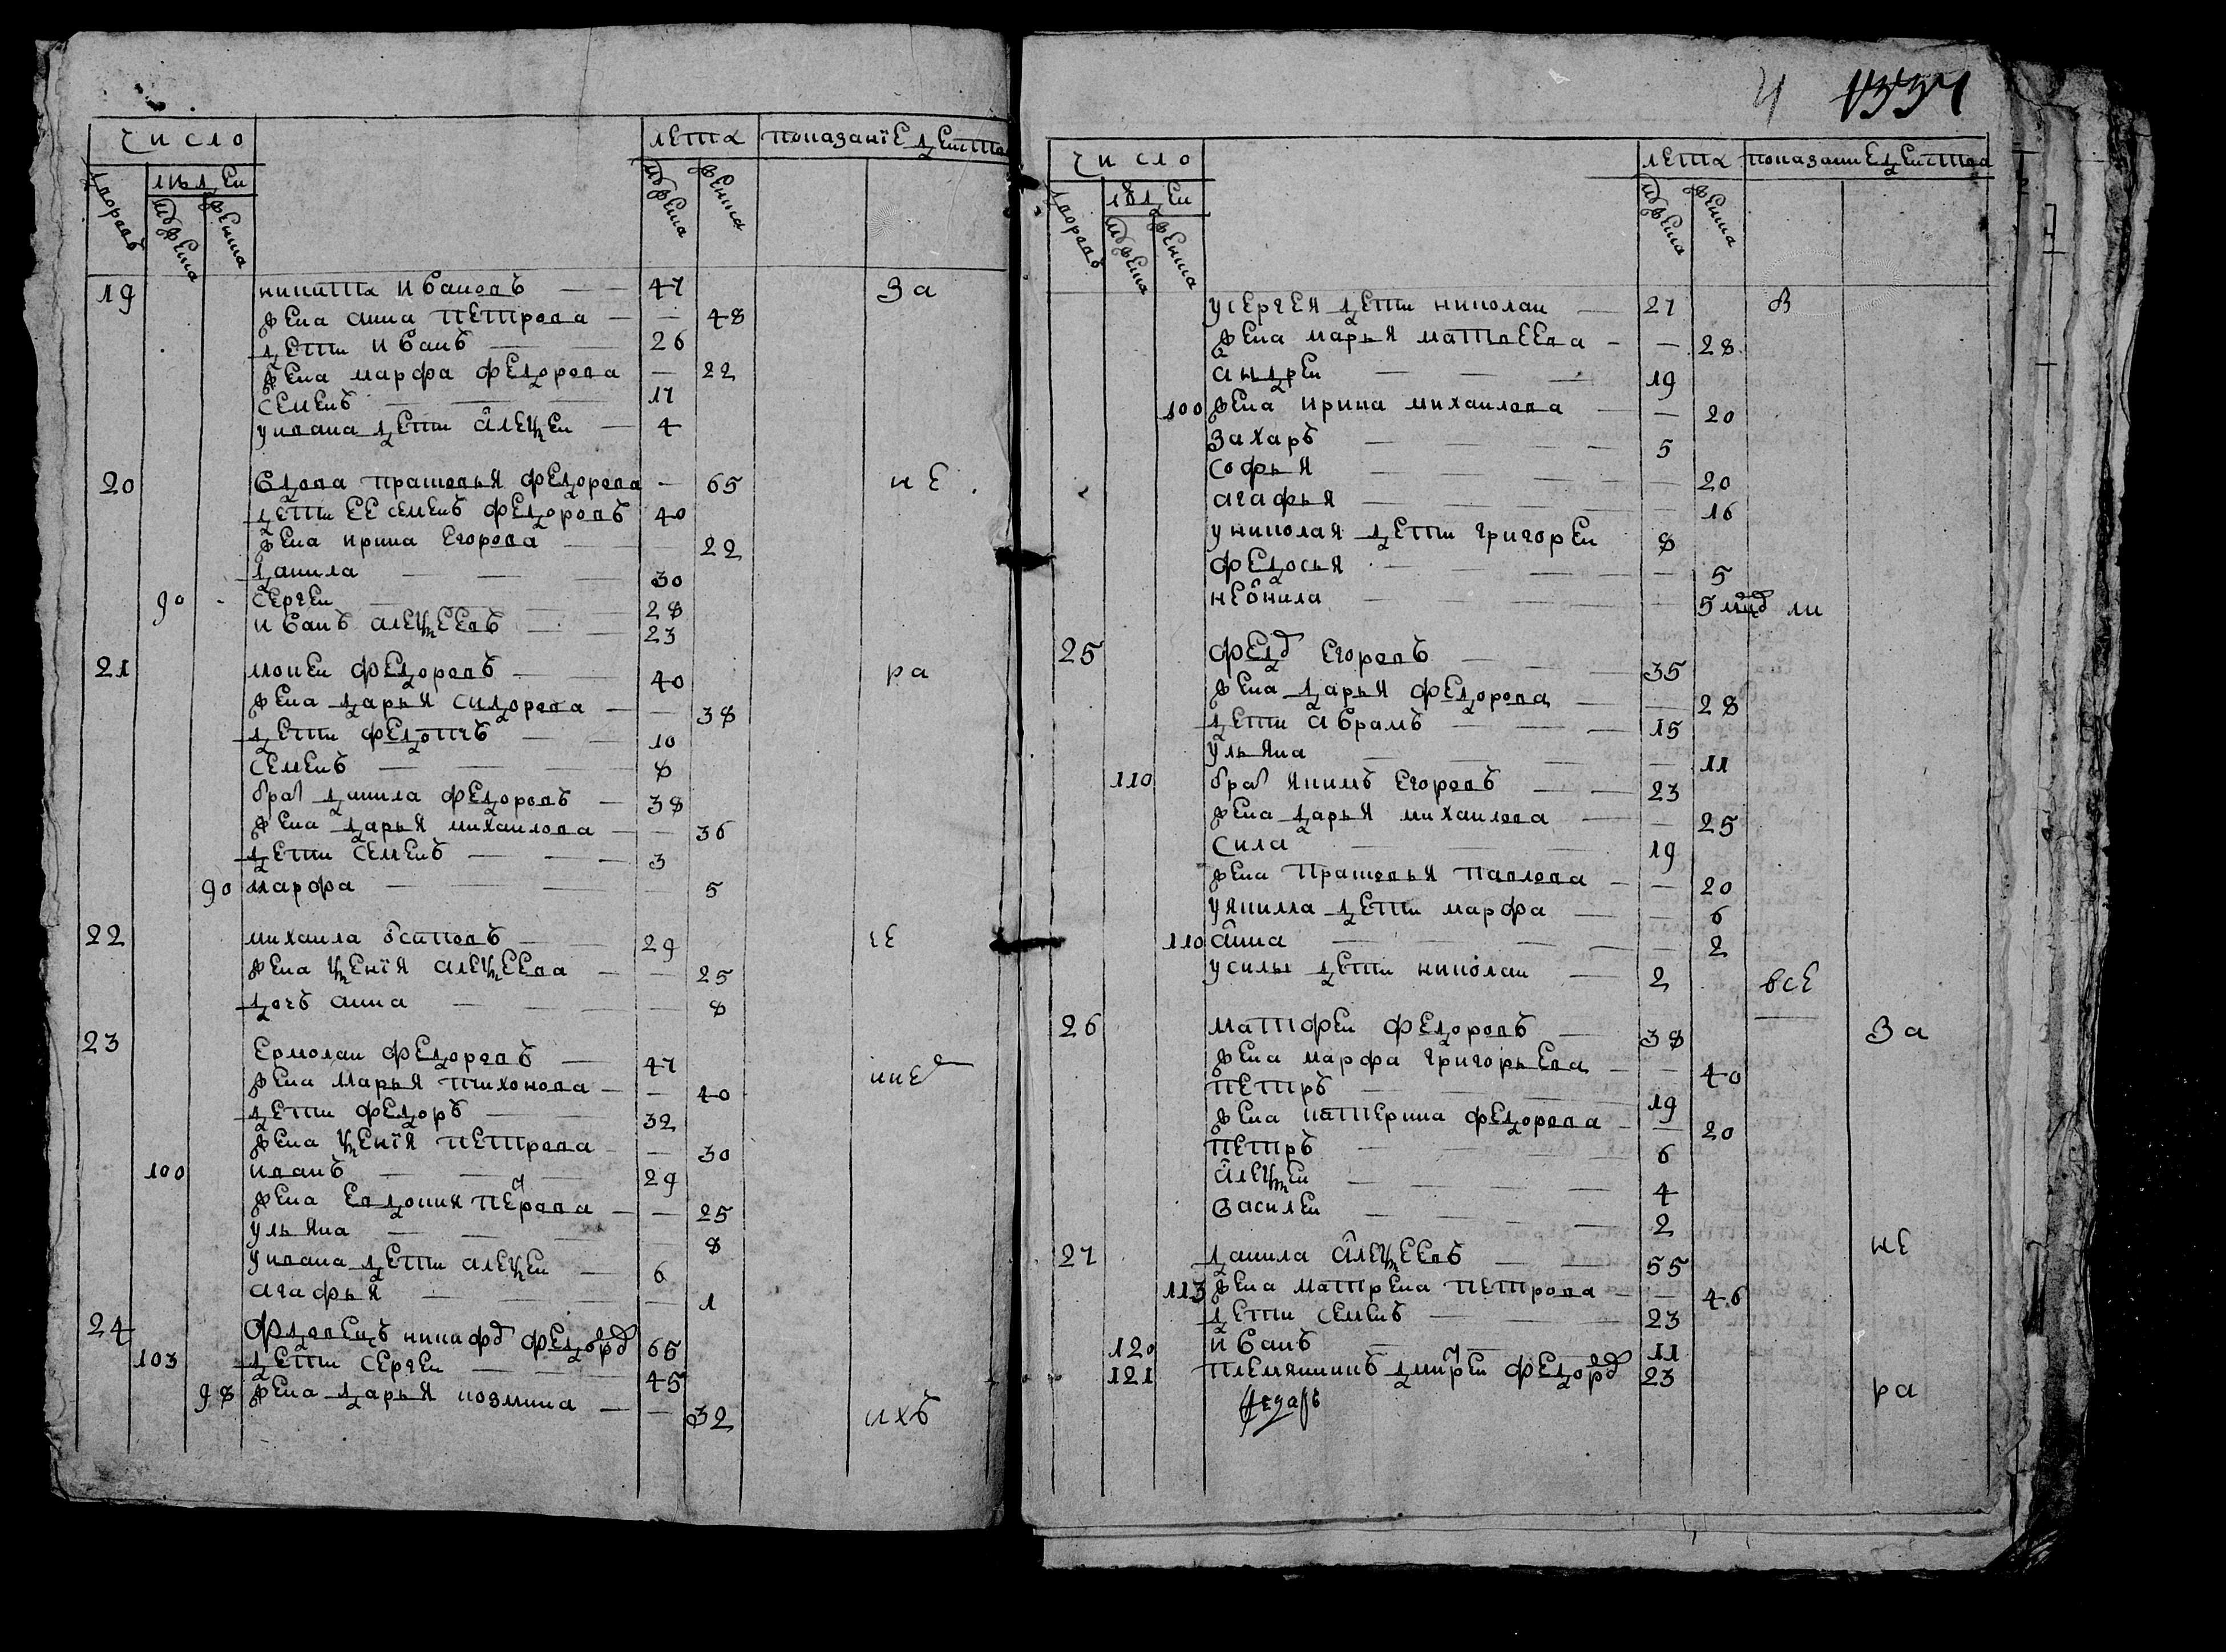 число лета показанїе действа
дворовъ людей мужеска женска мужеска женска
19 никита Ивановъ 47 За
жена анна петрова 48
дети Иванъ 26
жена марфа федорова 22
семенъ 17
уивана дети алеѯеи 4
20 вдова прасковья федорова 65 не
дети ее семенъ федоровъ 40
жена ирина егорова 22
данила 30
90 сергеи 28
Иванъ алеѯеевъ 23
21 мокеи федоровъ 40 ра
жена дарья сидорова 38
дети федотъ 10
семенъ 8
братъ данила федоровъ 38
жена дарья михаилова 36
дети семенъ 3
90 марфа 5
22 михаила осиповъ 29 че
жена ѯенїя алеѯеева 25
дочъ анна 8
23 ермолаи федоровъ 47
жена марья тихонова 40
дети федоръ 32
жена ѯенїя петрова 30
100 иванъ 29
жена евдокия перова 25
ульяна 8
уивана дети алеѯеи 6
агафья 1
24 вдовецъ никифоръ федоровъ 65
103 дети сергеи 45
98 жена дарья козмина 32 ихъ
4 1334
число лета показание действа
дворовъ людей мужеска женска мужеска женска
усергея дети николаи 27 в
жена марья матвеева 28
андреи 19
100 жена ирина михаилова 20
захаръ 5
софья 20
агафья 16
униколая дети григореи 8
федосья 5
неонила 5
25 федоръ егоровъ 35
жена дарья федорова 28
дети аврамъ 15
ульяна 11
110 братъ якимъ егоровъ 23
жена дарья михаилова 25
сила 19
жена прасковья павлова 20
уякима дети марфа 6
110 анна 2
усилы дети николаи 2 все
26 матфеи федоровъ 38 За
жена марфа григорьева 40
петръ 19
жена катерина федорова 20
петръ 6
алеѯеи 4
василеи 2
27 данила алеѯеевъ 55 не
113 жена матрена петрова 46
дети семенъ 23
120 Иванъ 11
121 племянникъ дмитреи федоровъ 23 ра